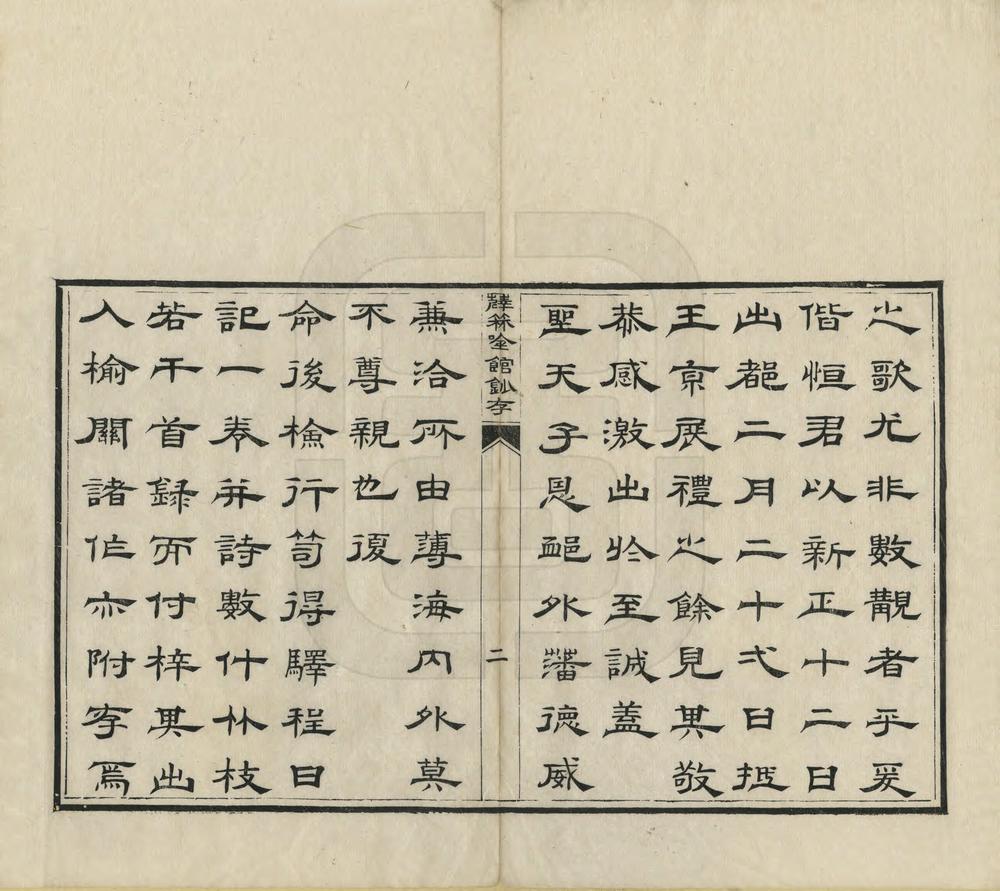 之歌尤非數覯者乎爰
偕恒君以新正十二日
出都二月二十弍日抵
王京展禮之餘見其敬
恭感激出於至誠蓋
聖天子恩䣛外藩德威
薜箖唫館鈔存
二
兼洽所由薄海內外莫
不尊親也復
命後檢行笥得驛程日
記一卷并詩數什竹枝
若干首録而付梓其出
入榆關諸作亦附存焉